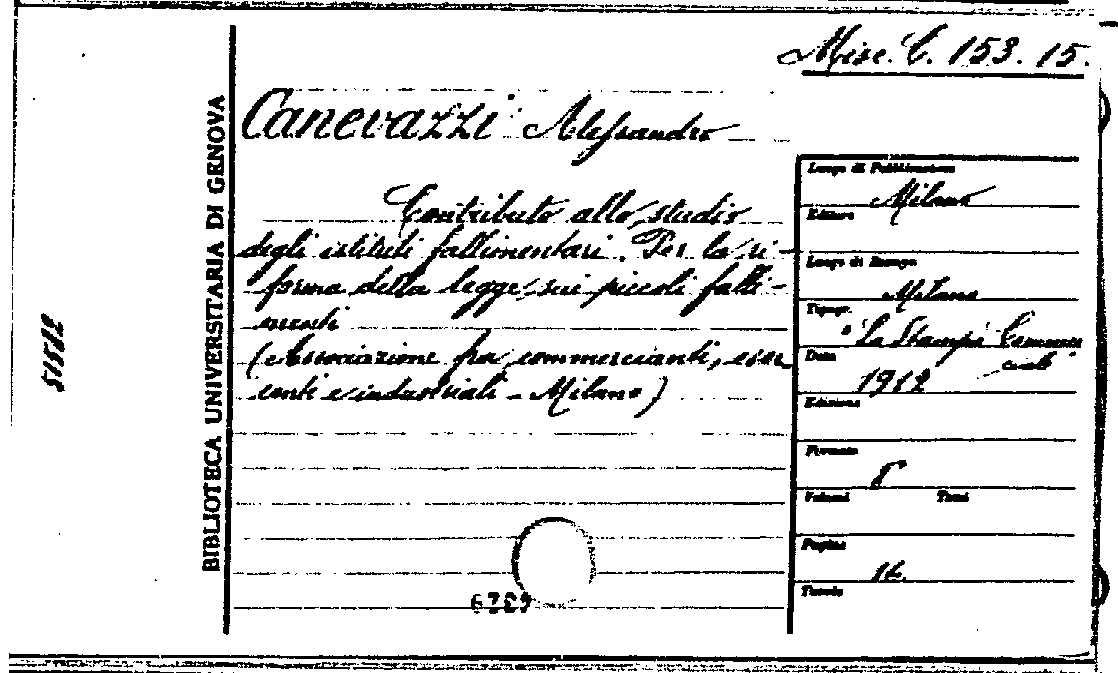 Misc. C. 153. 15.
Canevazzi Alessandro
Contributo allo studio
degli istituti fallimentari. Per la ri-
forma della legge sui piccoli falli-
menti
(Associazione fra commercianti, eser
centi e industriali - Milano)
BIBLIOTECA UNIVERSITARIA DI GENOVA
Luogo di Pubblicazione
Milano
Editore
Luogo di Stampa
Milano
Tipogr.
"La Stampa Commer
ciale"
Data
1912
Edizione
Formato
8°
Volumi Tomi
Pagine
16.
Tavole